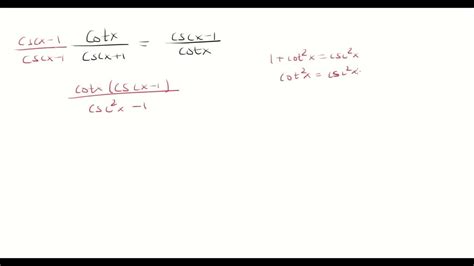 cscx-1/cscx-1 cotx/cscx+1 = cscx-1/cotx
1+cot²x=csc²x
cot²x=csc²x
cotx(cscx-1)/csc²x-1